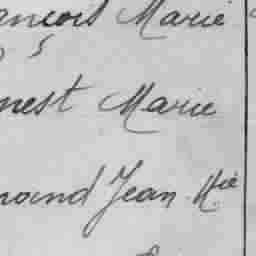 ançois Marie
nest Marie
mand Jean Mie